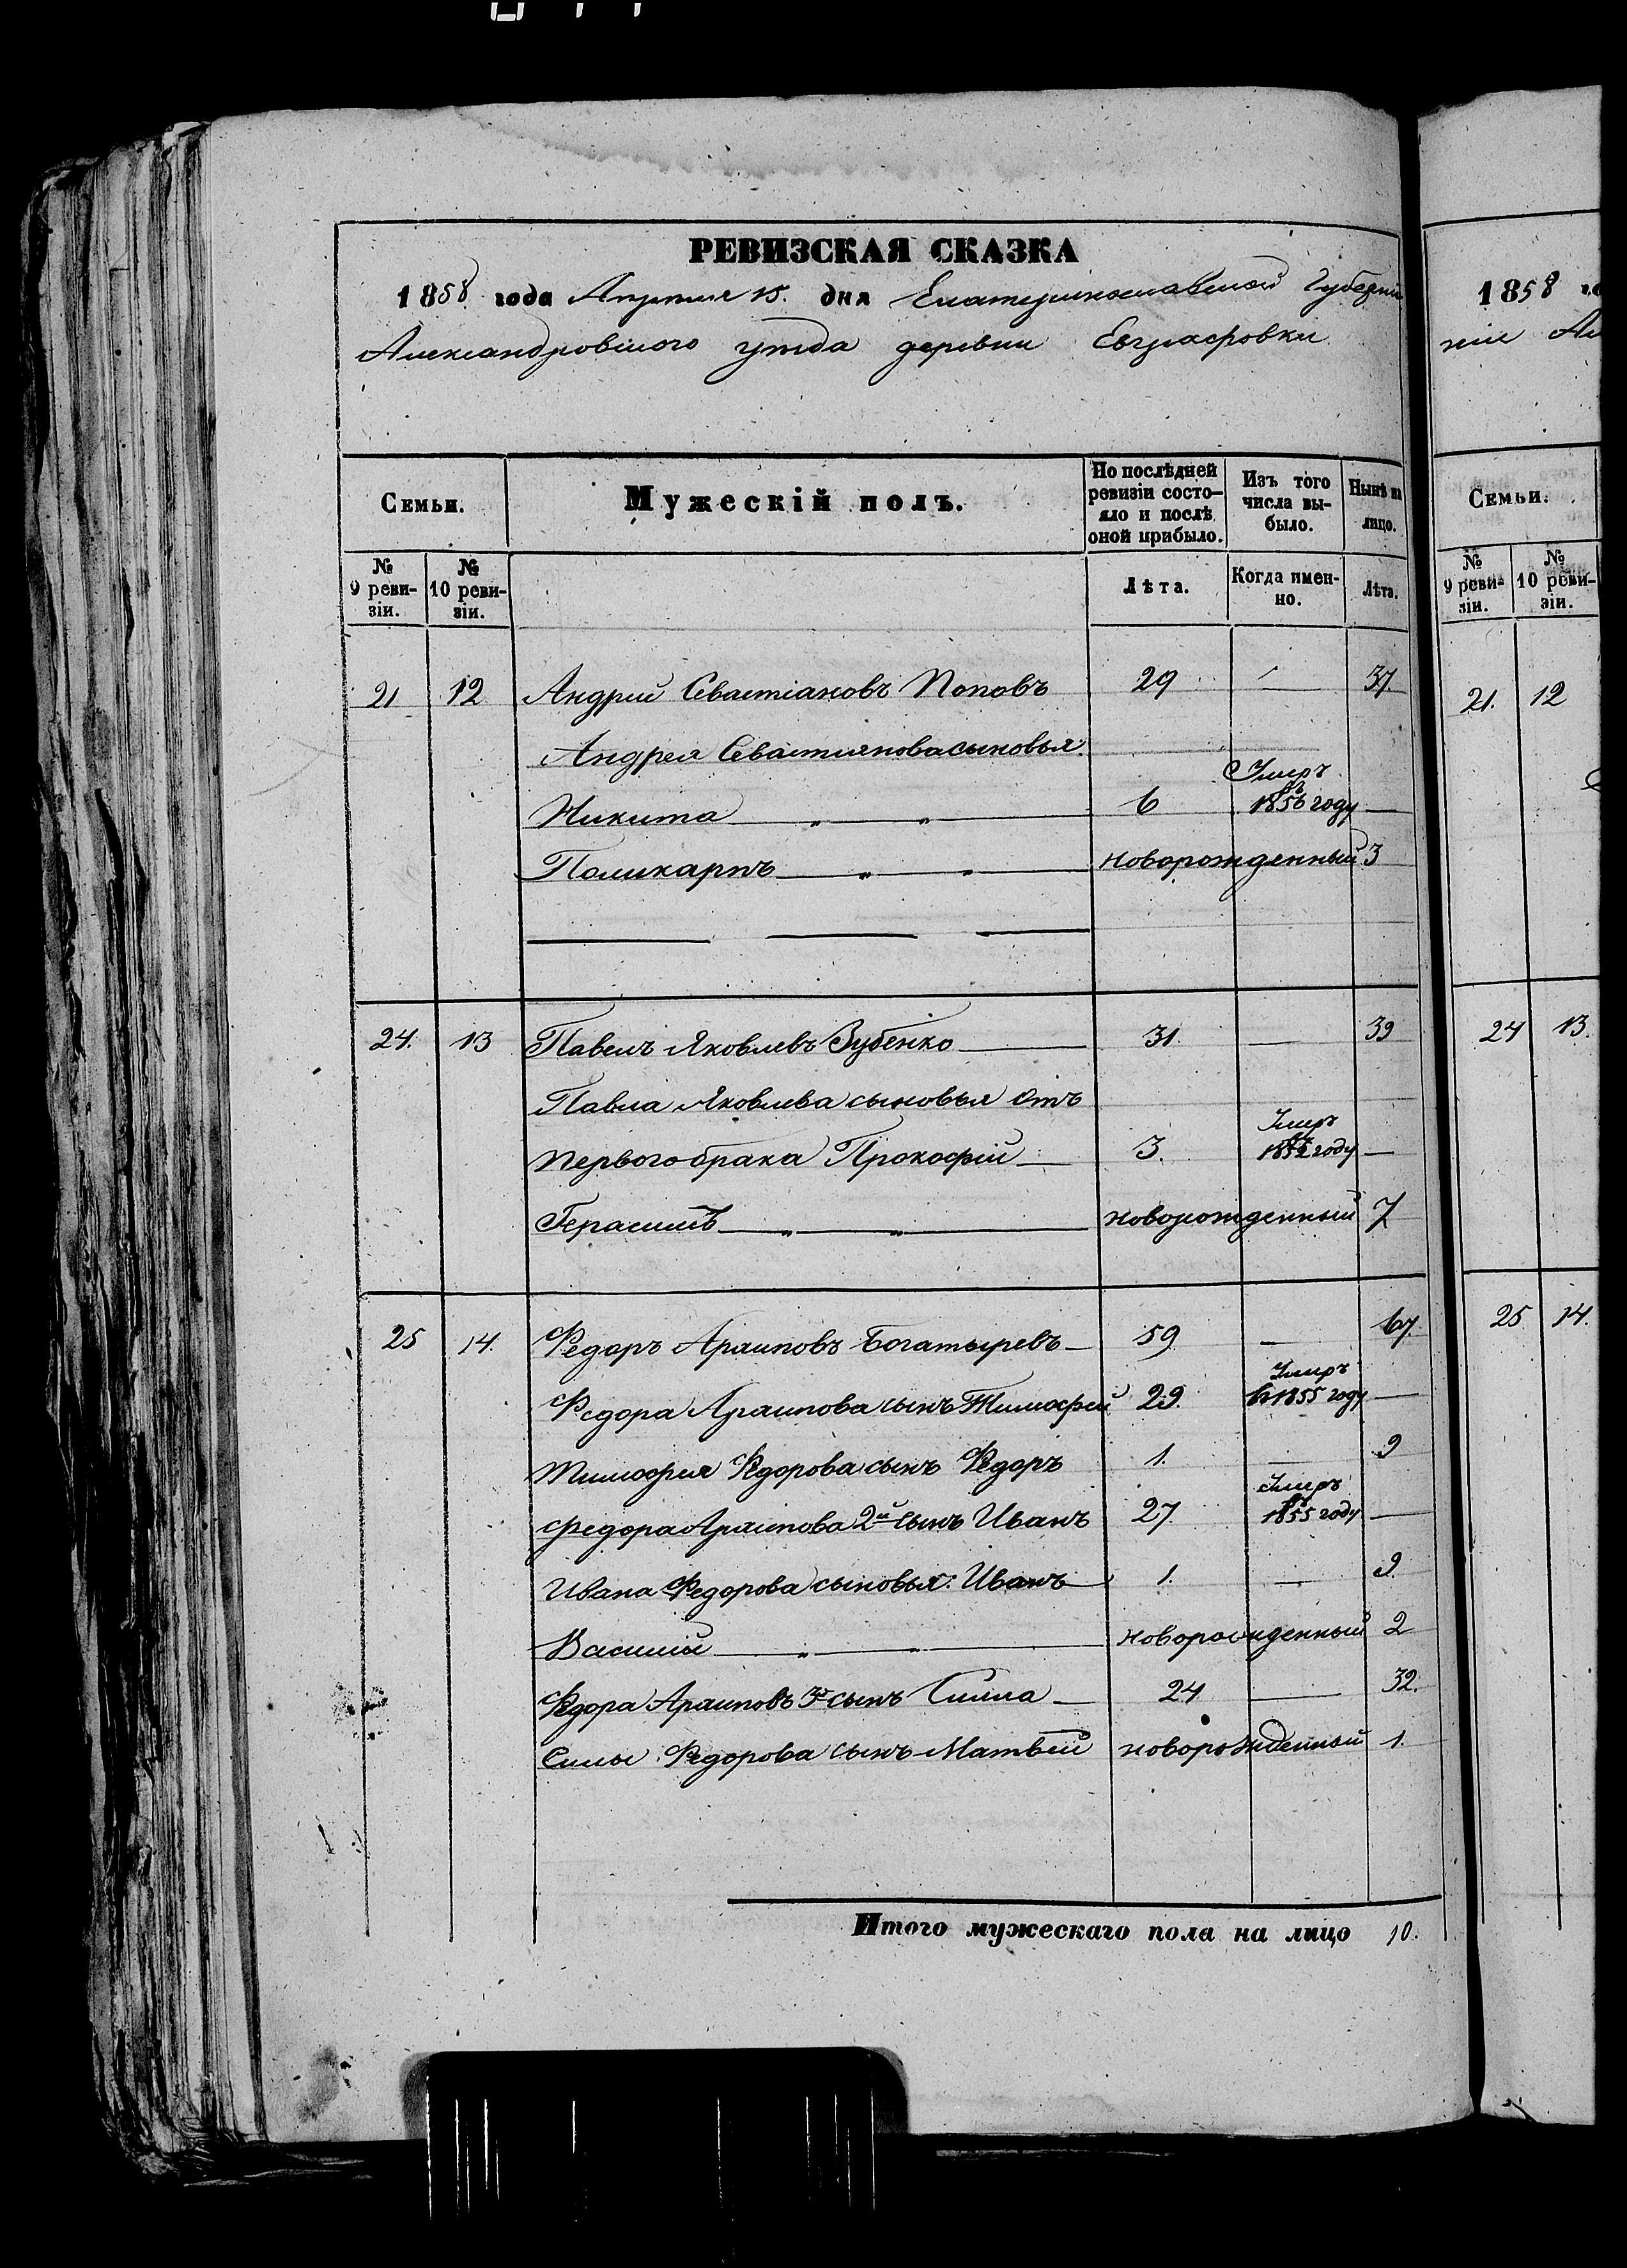 РЕВИЗСКАЯ СКАЗКА
1858 года Апреля 15. дня Екатеринославской Губерніи
Александровскаго уѣзда деревни Евграфовки
Семьи.
Мужескій полъ.
По послѣдней ревизіи состо-
яло и послѣ
оной прибыло.
Изъ того
числа вы-
было.
Нынѣ на
лицо.
№
9 реви-
зіи.
№
10 реви-
зіи.
Лѣта.
Когда имен-
но.
Лѣта.
21 12 Андрей Севастіановъ Поповъ 29 — 37.
Андрея Севастіянова сыновья:
Никита „ „ 6 Умеръ въ 1856 году —
Поликарпъ „ „ новорожденный 3
24. 13 Павелъ Яковлевъ Зубенко 31. — 39
Павла Яковлева сыновья отъ
первого брака Прокофій 3. Умеръ въ 1852 году —
Герасимъ „ „ новорожденный 7
25 14. Федоръ Архиповъ Богатыревъ 59 — 67.
Федора Архипова сынъ Тимофей 29. Умеръ въ 1855 году —
Тимофея Федорова сынъ Федоръ 1. — 9
Федора Архипова 2й сынъ Иванъ 27. Умеръ въ 1855 году —
Ивана Федорова сыновья: Иванъ 1. — 9
Василій „ „ новорожденный 2
Федора Архиповъ 3й сынъ Сила 24 — 32.
Силы Федорова сынъ Матвей новорожденный 1.
Итого мужескаго пола на лицо 10.
1858 го
ніи Ал
Семьи.
№
9 реви-
зіи.
№
10 реви-
зіи.
21. 12
24 13.
25 14.